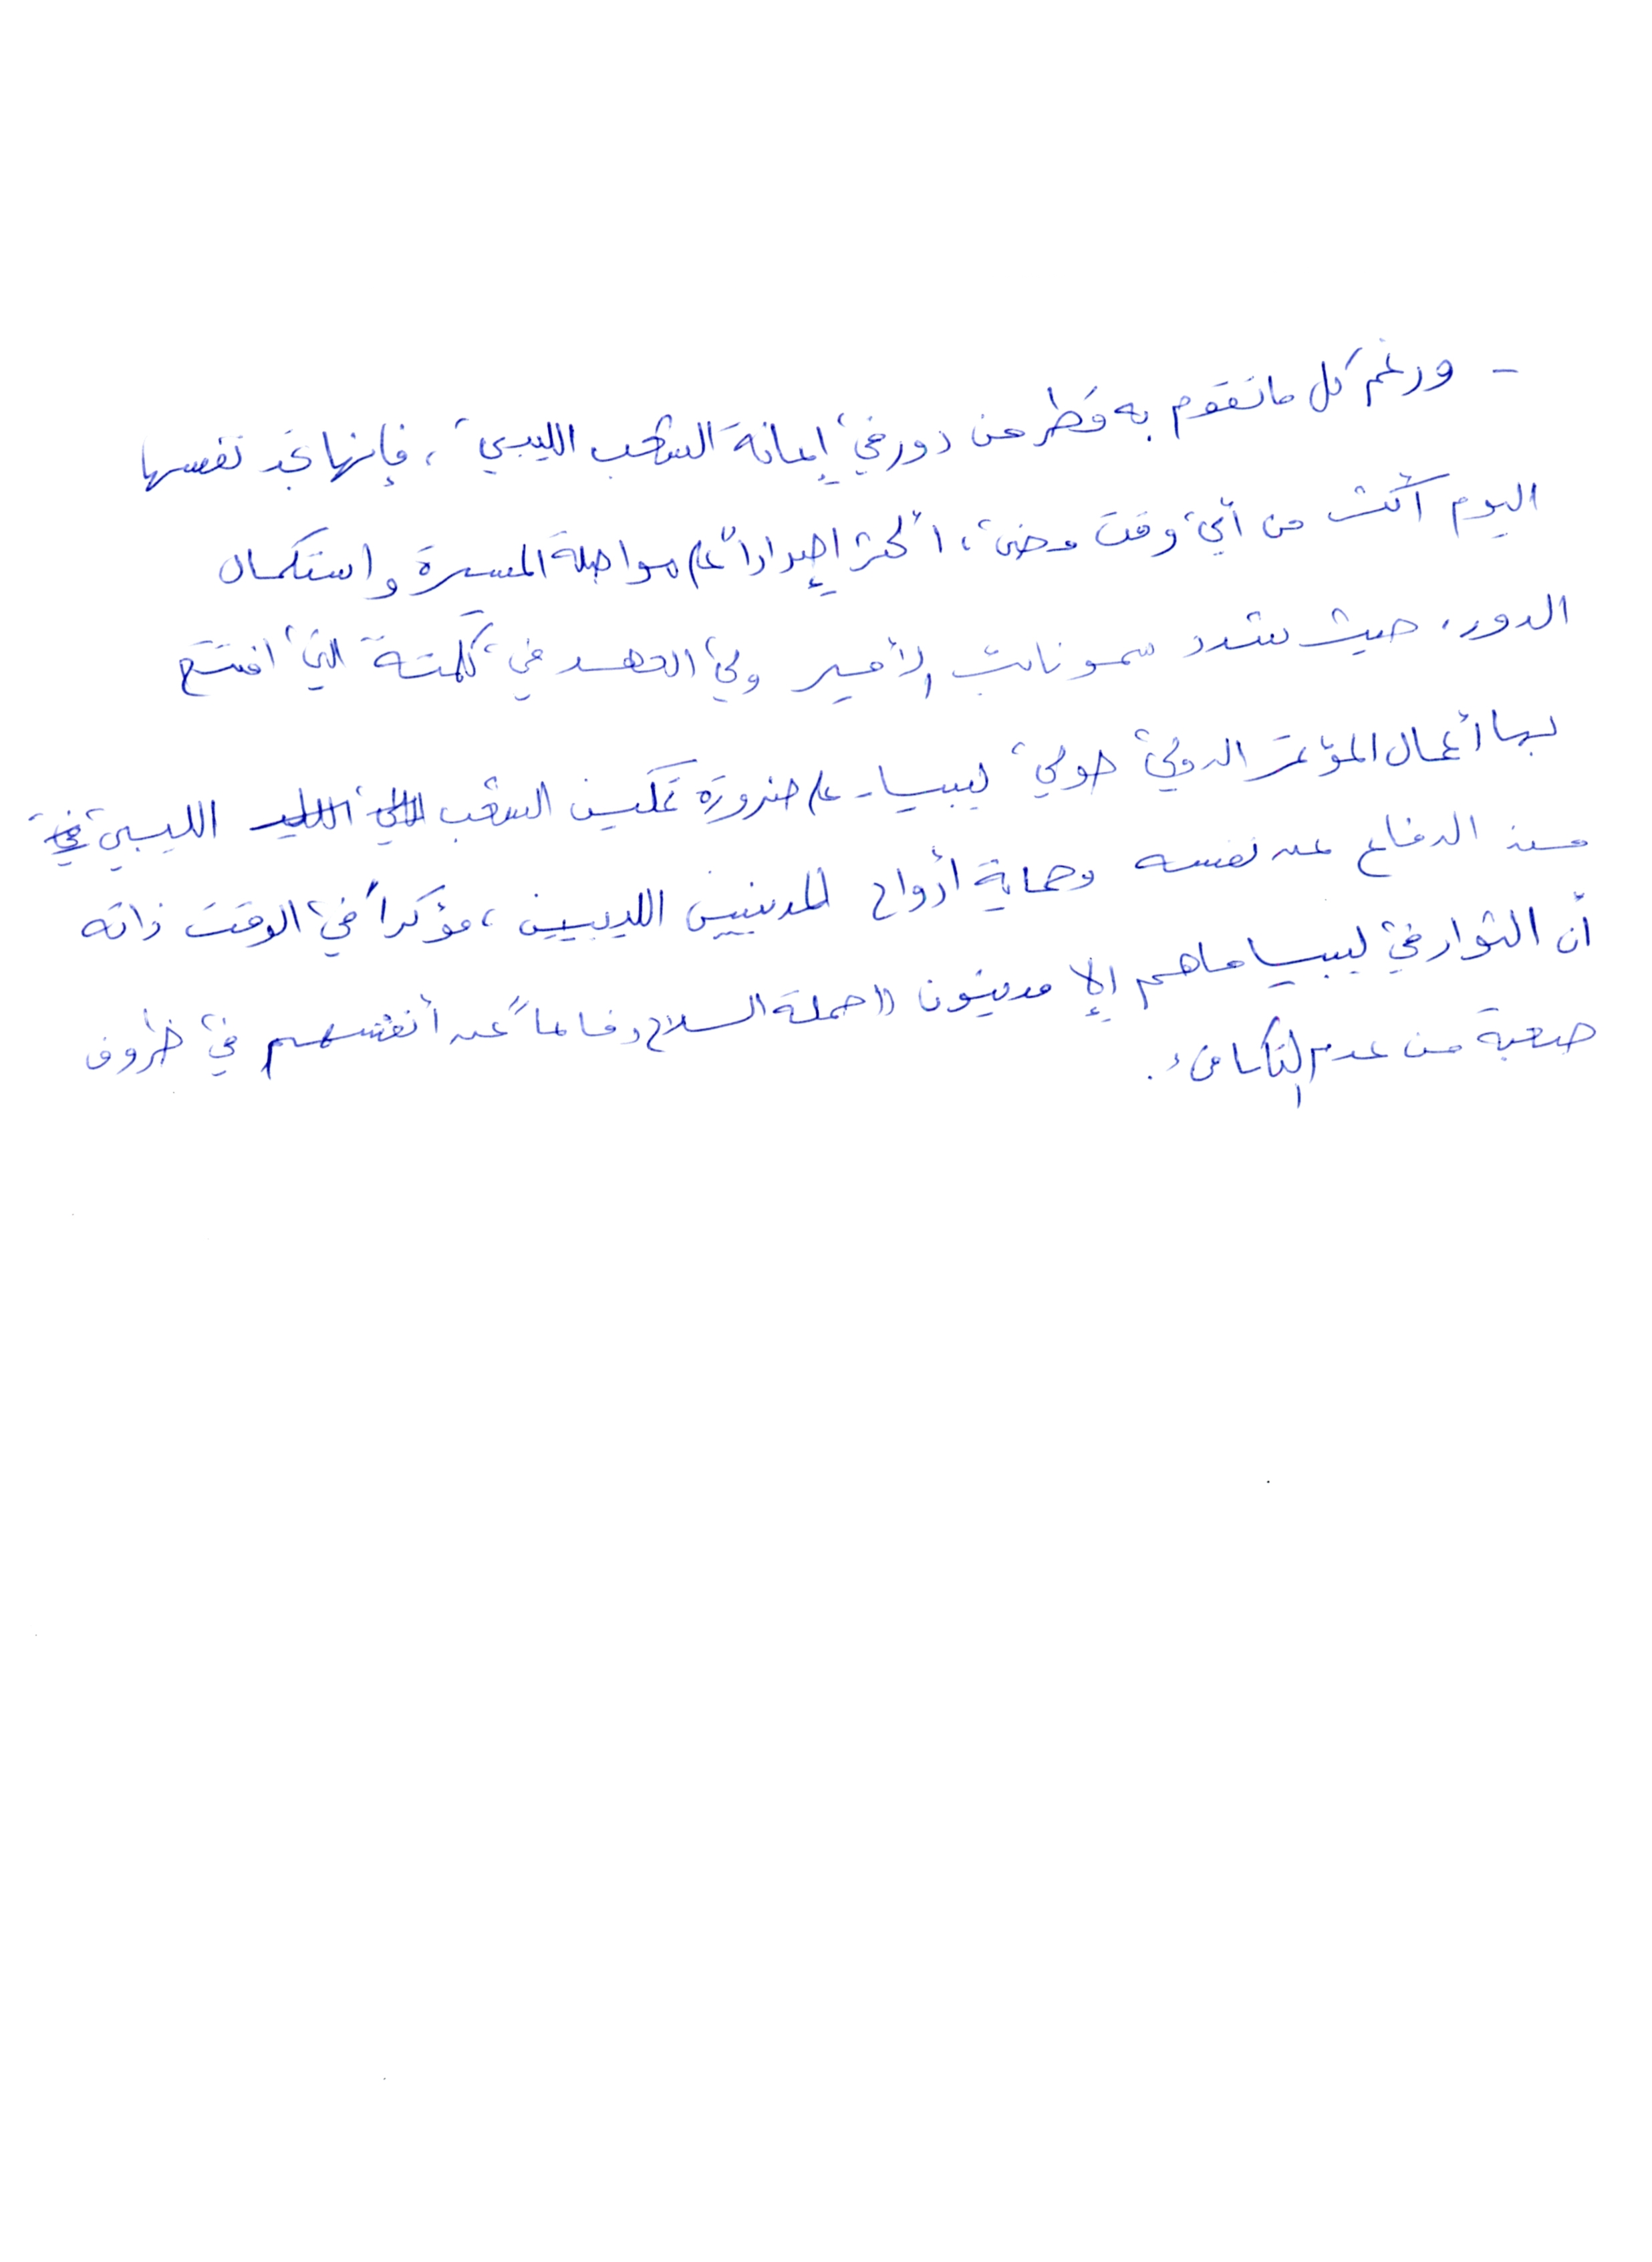 - ورغم كل ما تقوم به قطر من دور في إعانة الشعب الليبي، فإنها تجد نفسها
اليوم أكثر من أي وقت مضى، أكثر إصراراً على مواصلة المسيرة واستكمال
الدور، حيث شدد سمو نائب الأمير ولي العهد في كلمته التي افتتح
بها أعمال المؤتمر الدولي حول ليبيا- على ضرورة تمكين الشعب الليبي
من الدفاع عن نفسه وحماية أرواح المدنيين الليبيين، مؤكداً في الوقت ذاته
أن الثوار في ليبيا ما هم إلا مدنيون حملة السلاح دفاعاً عن أنفسهم في ظروف
صعبة من عدم التكافؤ.